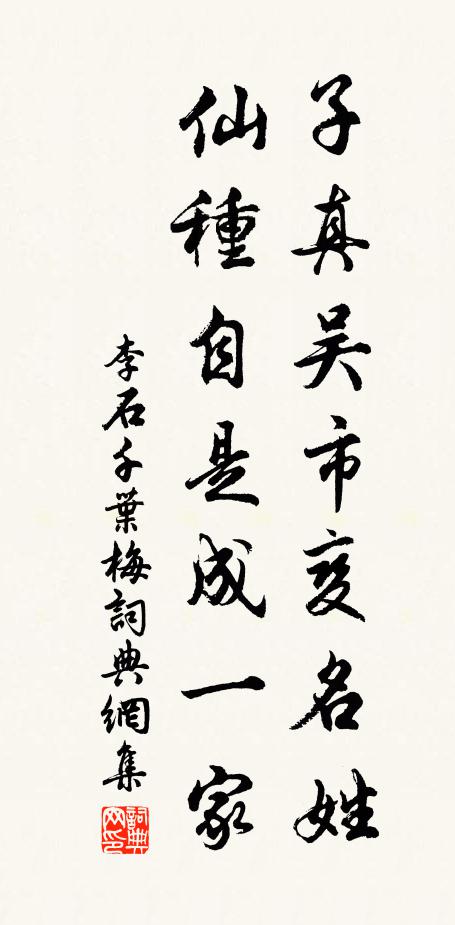 子真吴市变名姓
仙種自是成一家
李石千葉梅詞典網集
詞典网印